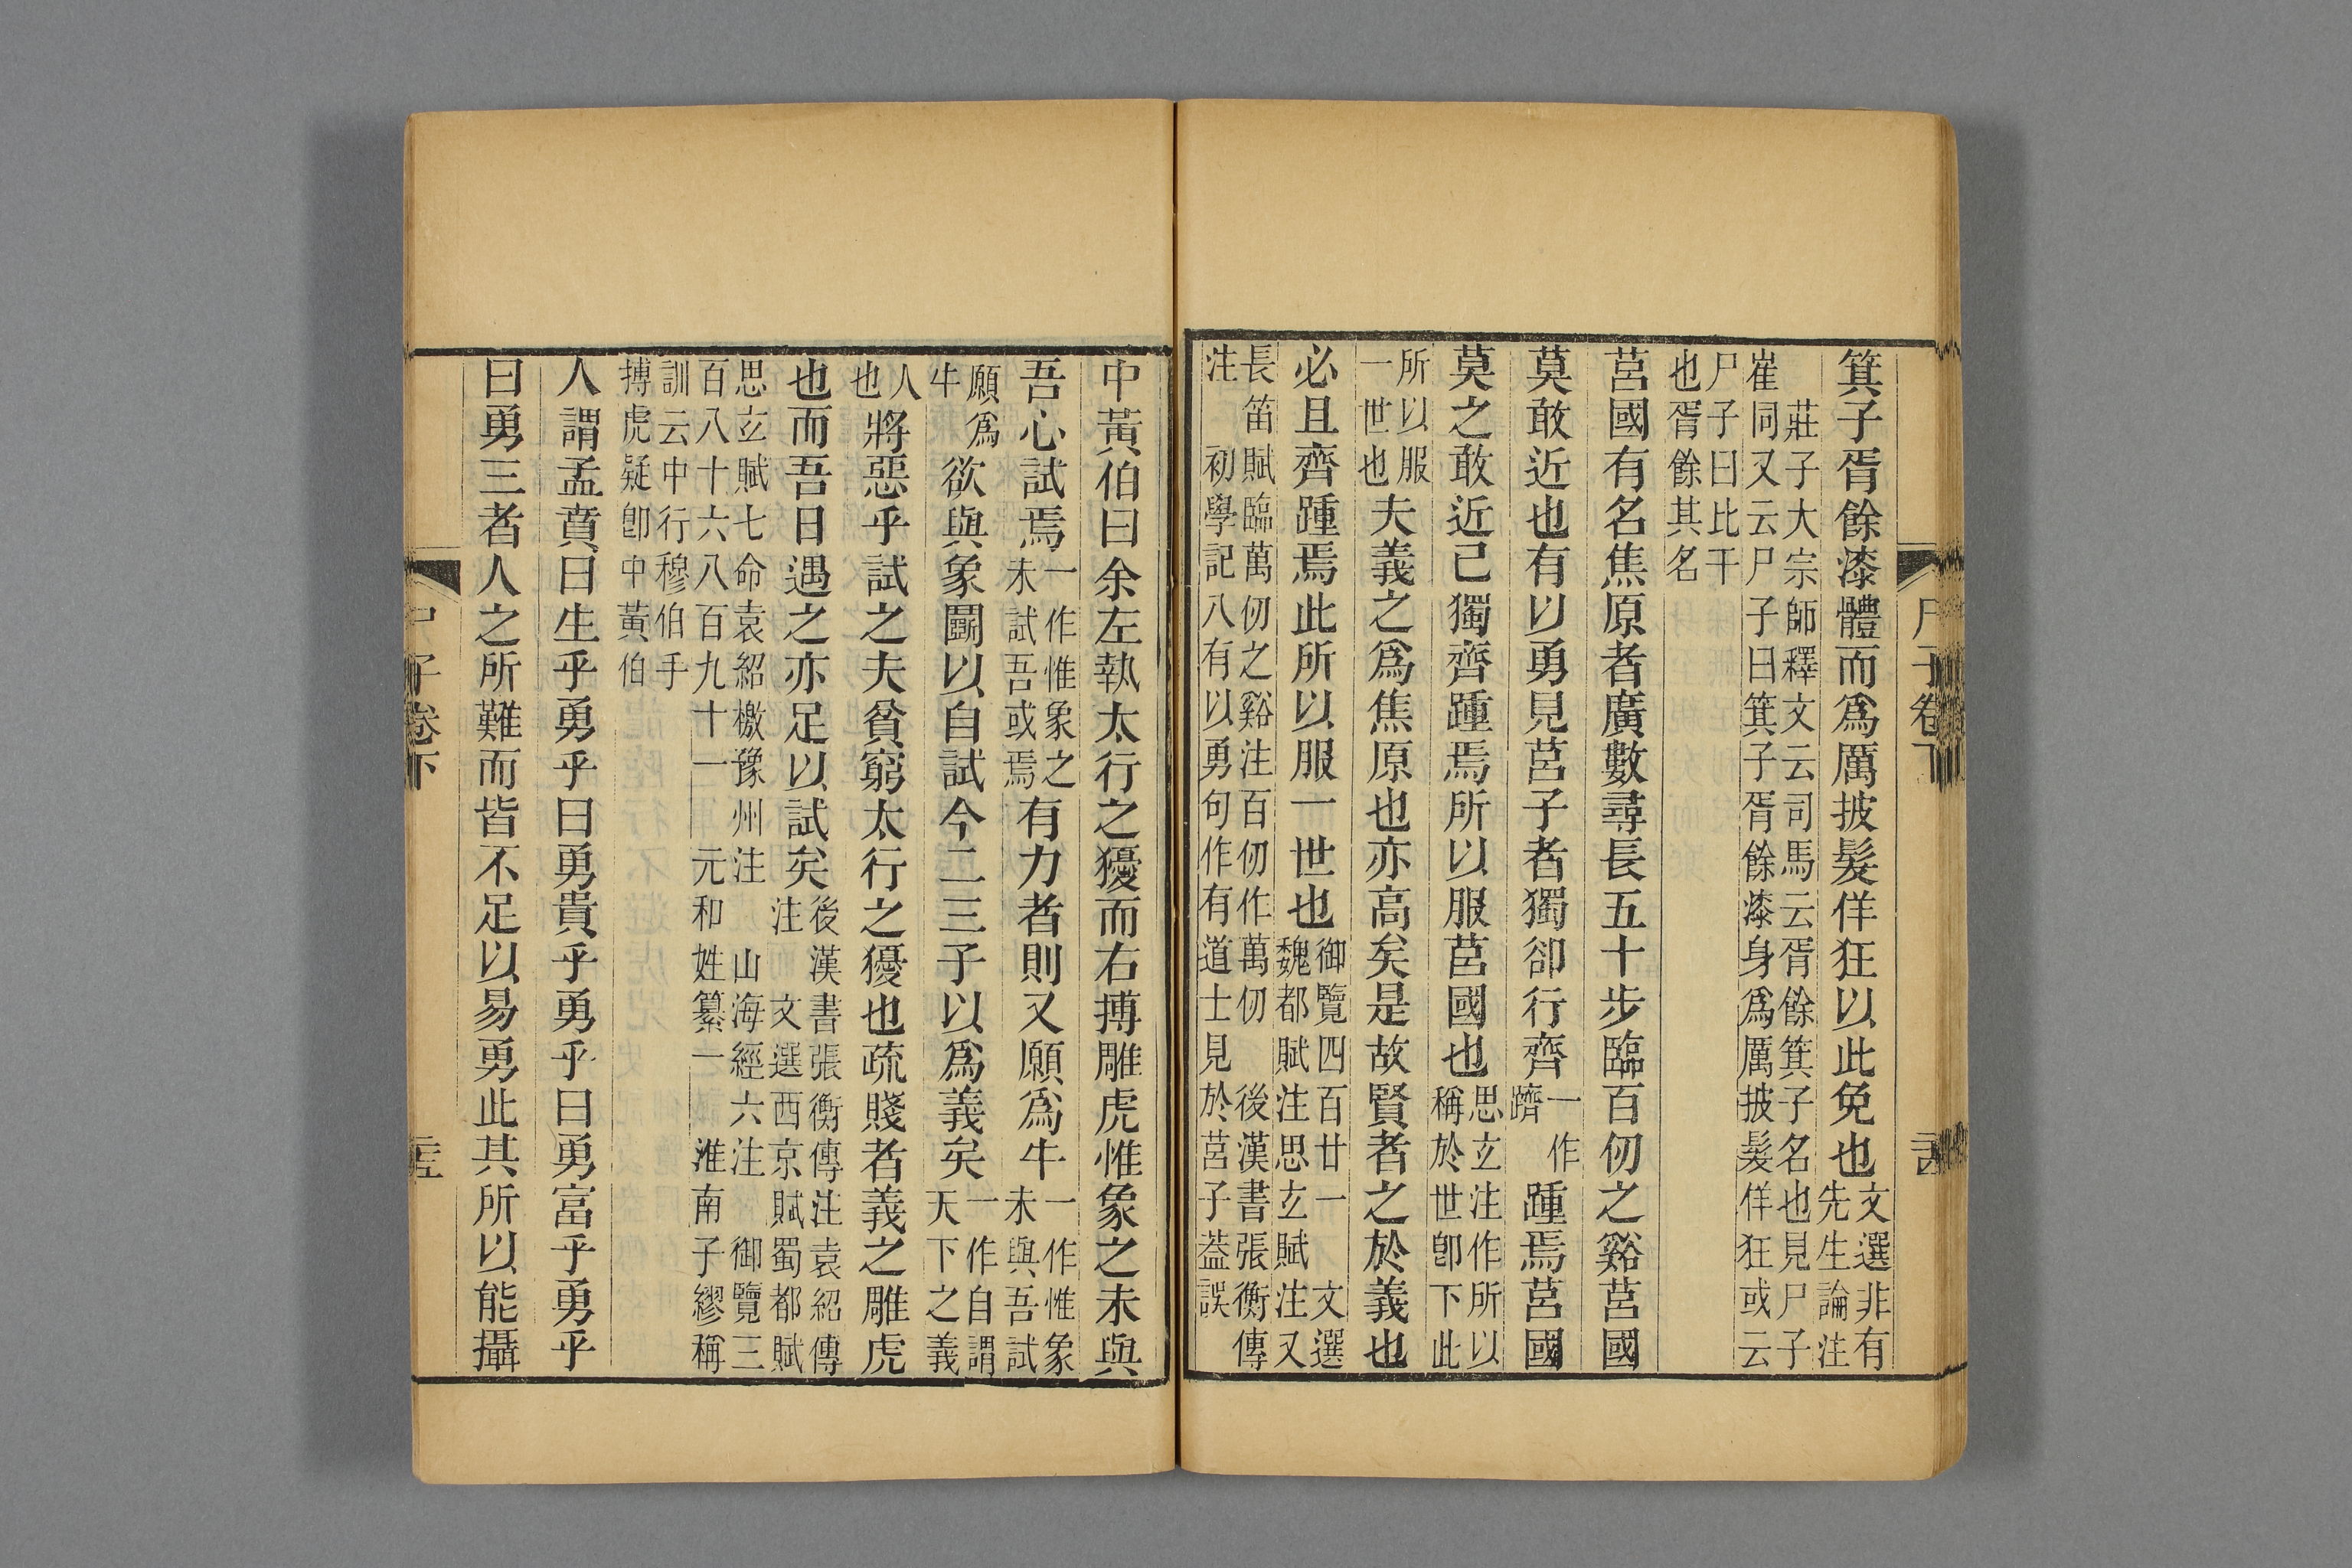 尸子卷下
箕子胥餘漆體而爲厲披髮佯狂以此免也文選非有先生論注
莊子大宗師釋文云司馬云胥餘箕子名也見尸子
崔同又云尸子曰箕子胥餘漆身爲厲披髮佯狂或云
尸子曰比干
也胥餘其名
莒國有名焦原者廣數尋長五十步臨百仞之谿莒國
莫敢近也有以勇見莒子者獨卻行齊一作躋踵焉莒國
莫之敢近已獨齊踵焉所以服莒國也思玄注作所以稱於世卽下此
所以服一世也夫義之爲焦原也亦高矣是故賢者之於義也
必且齊踵焉此所以服一世也御覽四百廿一 文選魏都賦注思玄賦注又
長笛賦臨萬仞之谿注百仞作萬仞 後漢書張衡傳
注 初學記八有以勇句作有道士見於莒子葢誤
中黃伯曰余左執太行之獶而右搏雕虎惟象之未與
吾心試焉一作惟象之未試吾或焉有力者則又願爲牛一作惟象未與吾試
願爲牛欲與象鬭以自試今二三子以爲義矣一作自謂天下之義
人也將惡乎試之夫貧窮太行之獶也疏賤者義之雕虎
也而吾日遇之亦足以試矣後漢書張衡傳注袁紹傳注 文選西京賦蜀都賦
思玄賦七命袁紹檄豫州注 山海經六注 御覽三
百八十六八百九十一 元和姓纂一 淮南子繆稱
訓云中行穆伯手
搏虎疑卽中黃伯
人謂孟賁曰生乎勇乎曰勇貴乎勇乎曰勇富乎勇乎
曰勇三者人之所難而皆不足以易勇此其所以能攝
尸子卷下